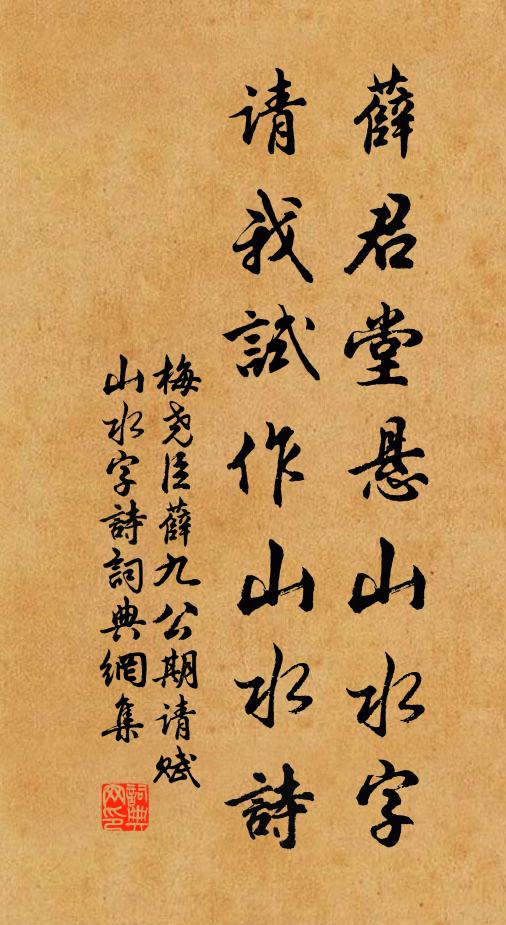 薛君堂悬山水字
请我試作山水詩
梅尧臣薛九公期请赋
山水字詩詞典網集
詞典网印